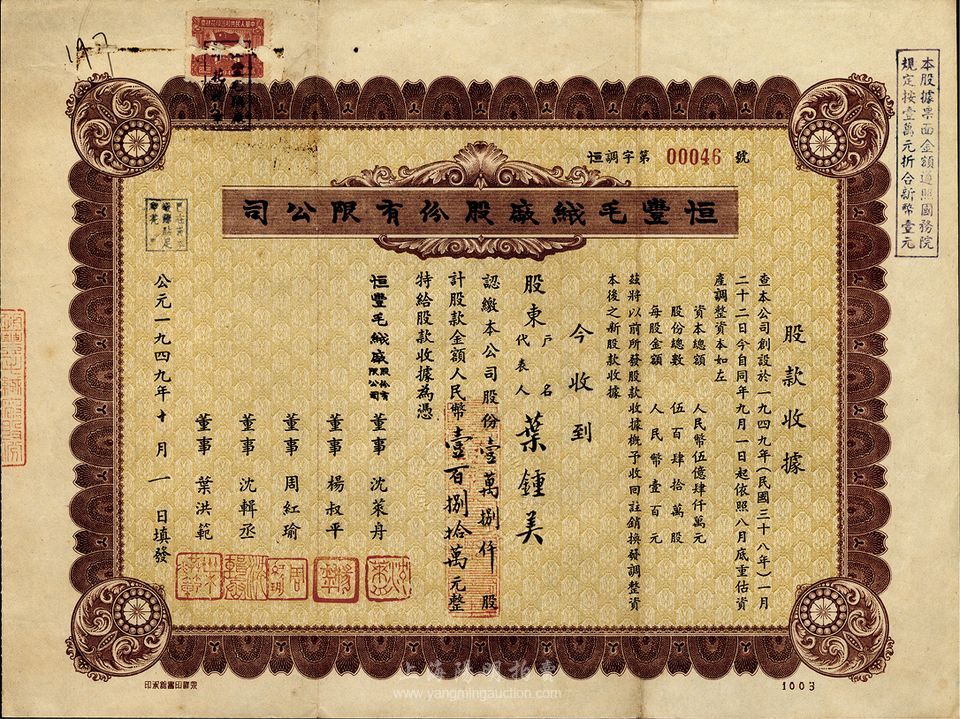 恒調字第 00046 號
恒豐毛絨廠股份有限公司
股款收據
查本公司創設於一九四九年(民國三十八年)一月
二十二日今自同年九月一日起依照八月底重估資
產調整資本如左
資本總額 人民幣伍億肆仟萬元
股份總數 伍百肆拾萬股
每股金額 人民幣壹百元
茲將以前所發股款收據概予收回註銷換發調整資
本後之新股款收據
今收到
股東戶名代表人 葉鍾美
認繳本公司股份壹萬捌仟股
計股款金額人民幣壹百捌拾萬元整
特給股款收據為憑
恒豐毛絨廠股份有限公司
董事 沈萊舟
董事 楊叔平
董事 周紅瑜
董事 沈輯丞
董事 葉洪範
公元一九四九年十月一日填發
本股據票面金額遵照國務院
規定按壹萬元折合新幣壹元
1003
上海陽明拍賣
www.yangmingauction.com